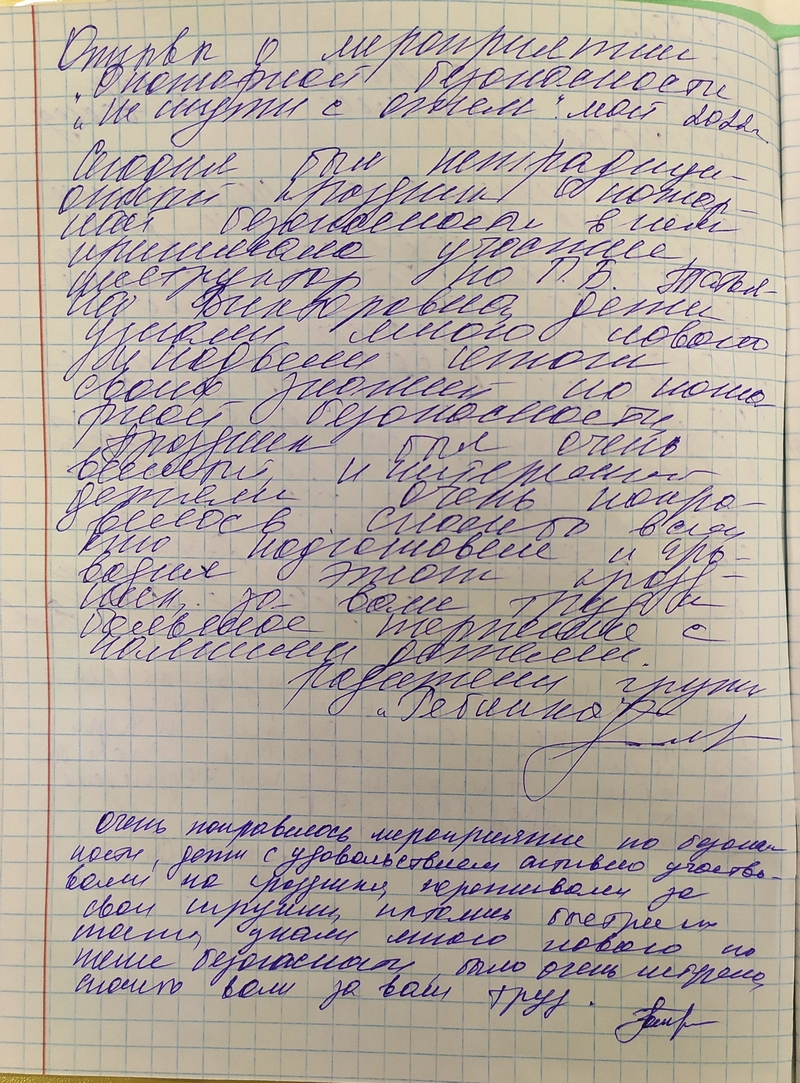 Отзыв о мероприятии
"О пожарной безопасности
"Не шути с огнем". май 2022г.
Сегодня был нетрадици-
онный праздник о пожар-
ной безопасности в нем
принимала участие
инструктор по П.Б. Татья-
на Викторовна, дети
узнали много нового
и подвели итоги
своих знаний по пожа
рной безопасности
Праздник был очень
веселый, и интересный
детям очень понра-
вилось. Спасибо всем
кто подготовил и про-
водил этот празд-
ник, за ваш труд и
терпение с
нашими детьми.
родители группы
Очень понравилось мероприятие по безопас
ности, дети с удовольствием активно участво-
вали на празднике, переживали за
свои игрушки, пытались быстрее их
узнали много нового по
теме безопасности, было очень интересно,
спасибо вам за ваш труд.